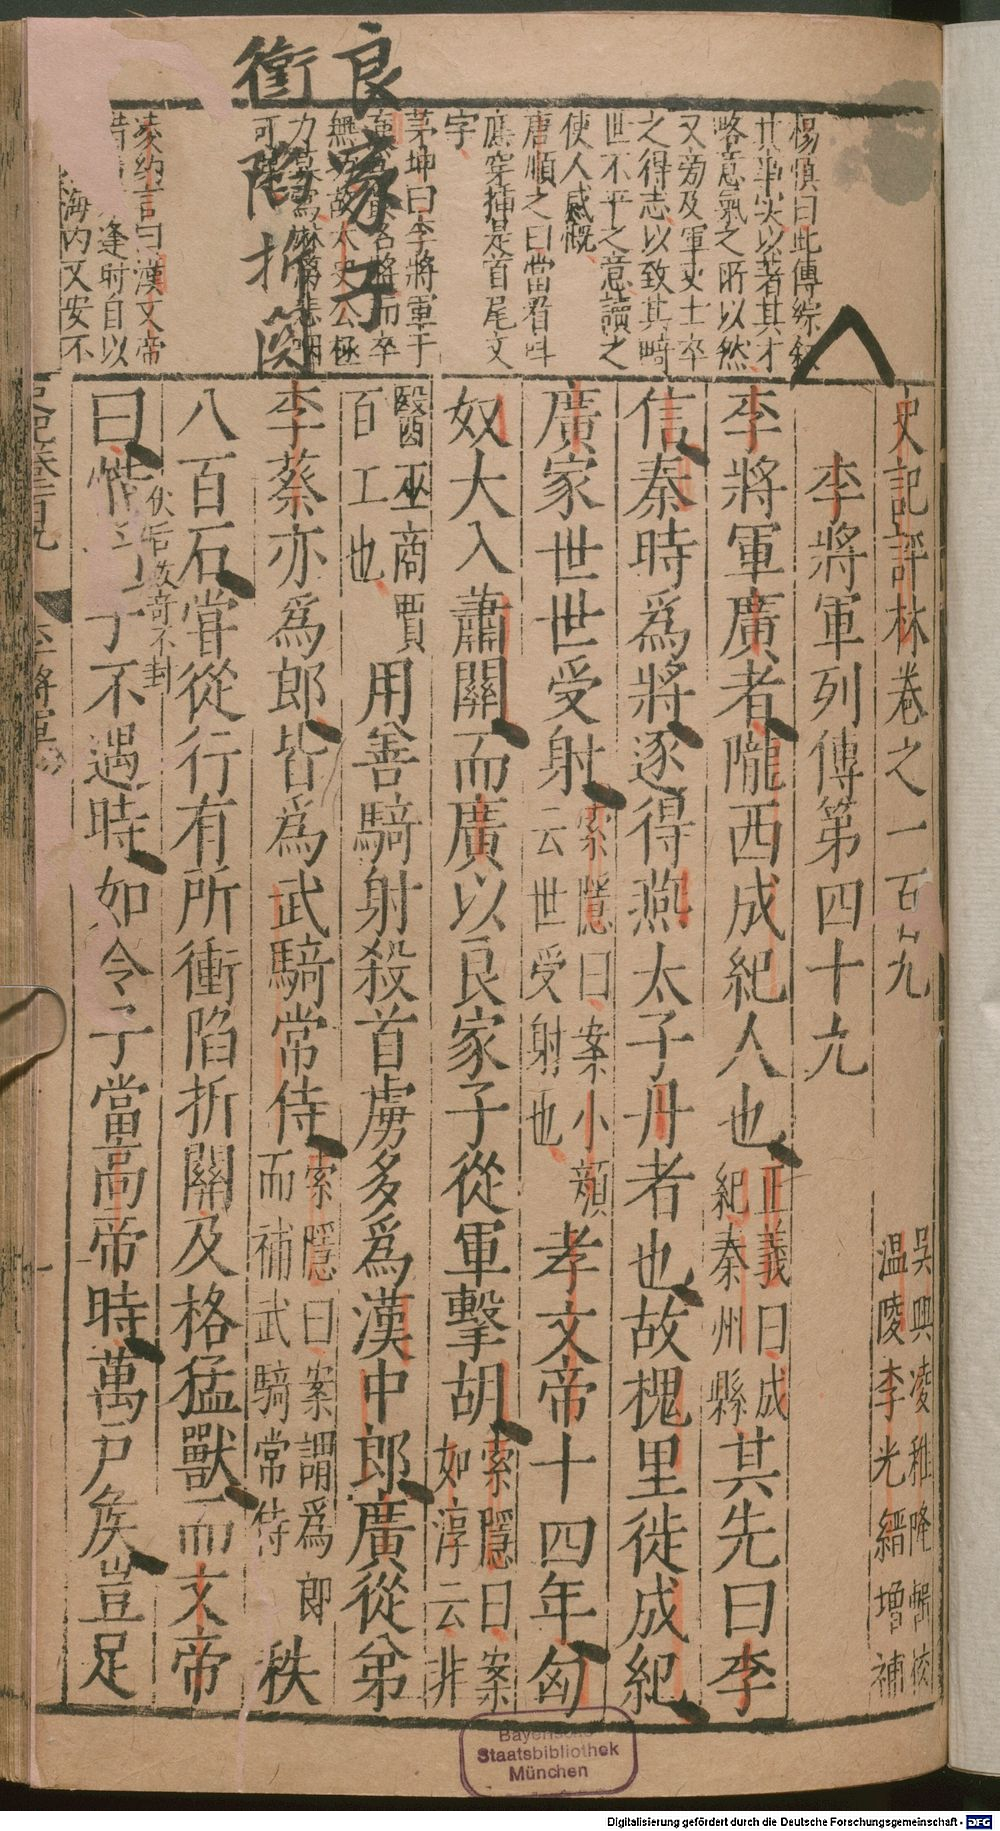 良家子
衝陷折関
楊慎曰此傳綜敘
廿事尖以著其才
略意氣之所以然
又旁及軍吏士卒
之得志以致其畸
世不平之意讀之
使人感慨
唐順之曰當看
應穿插是首尾文
字
茅坤曰李將軍于
名將而卒
太史公極
力
可
凌約言曰漢文帝
惜逢時自以
海內乂安不
史記評林卷之一百九
吳興凌稚隆輯校
温陵李光縉增補
李將軍列傳第四十九
李將軍廣者隴西成紀人也正義曰成紀秦州縣其先曰李
信秦時為將逐得燕太子丹者也故槐里徙成紀
廣家世世受射索隱曰案小顏云世受射也孝文帝十四年匈
奴大入蕭關而廣以良家子從軍擊胡索隱曰案如淳云非
醫巫商賈百工也用善騎射殺首虜多為漢中郎廣從弟
李蔡亦為郎皆為武騎常侍索隱曰案謂為郎而補武騎常侍秩
八百石嘗從行有所衝陷折關及格猛獸而文帝
曰惜乎伏后故奇不封子不遇時如令子當高帝時萬戶侯豈足
李將軍
一
Bayerische
Staatsbibliothek
München
Digitalisierung gefördert durch die Deutsche Forschungsgemeinschaft - DFG